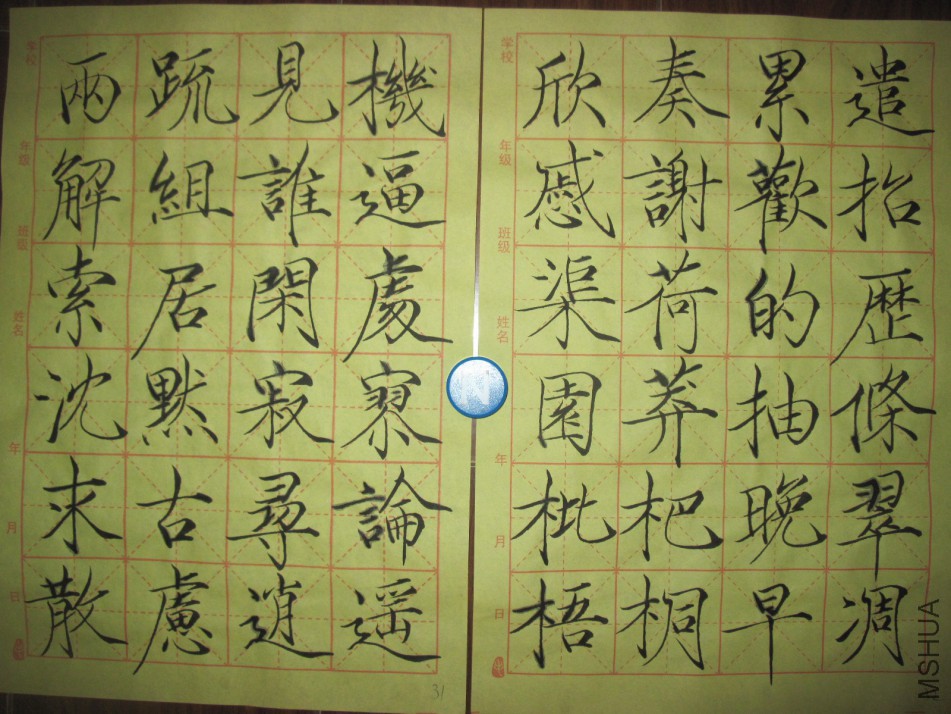 兩疏見機
解組誰逼
索居閑處
沈默寂寥
求古尋論
散慮逍遥
欣奏累遣
慼謝歡招
渠荷的歷
園莽抽條
枇杷晚翠
梧桐早凋
学校
年级
班级
姓名
年
月
日
学校
年级
班级
姓名
年
月
日
31
MSHUA